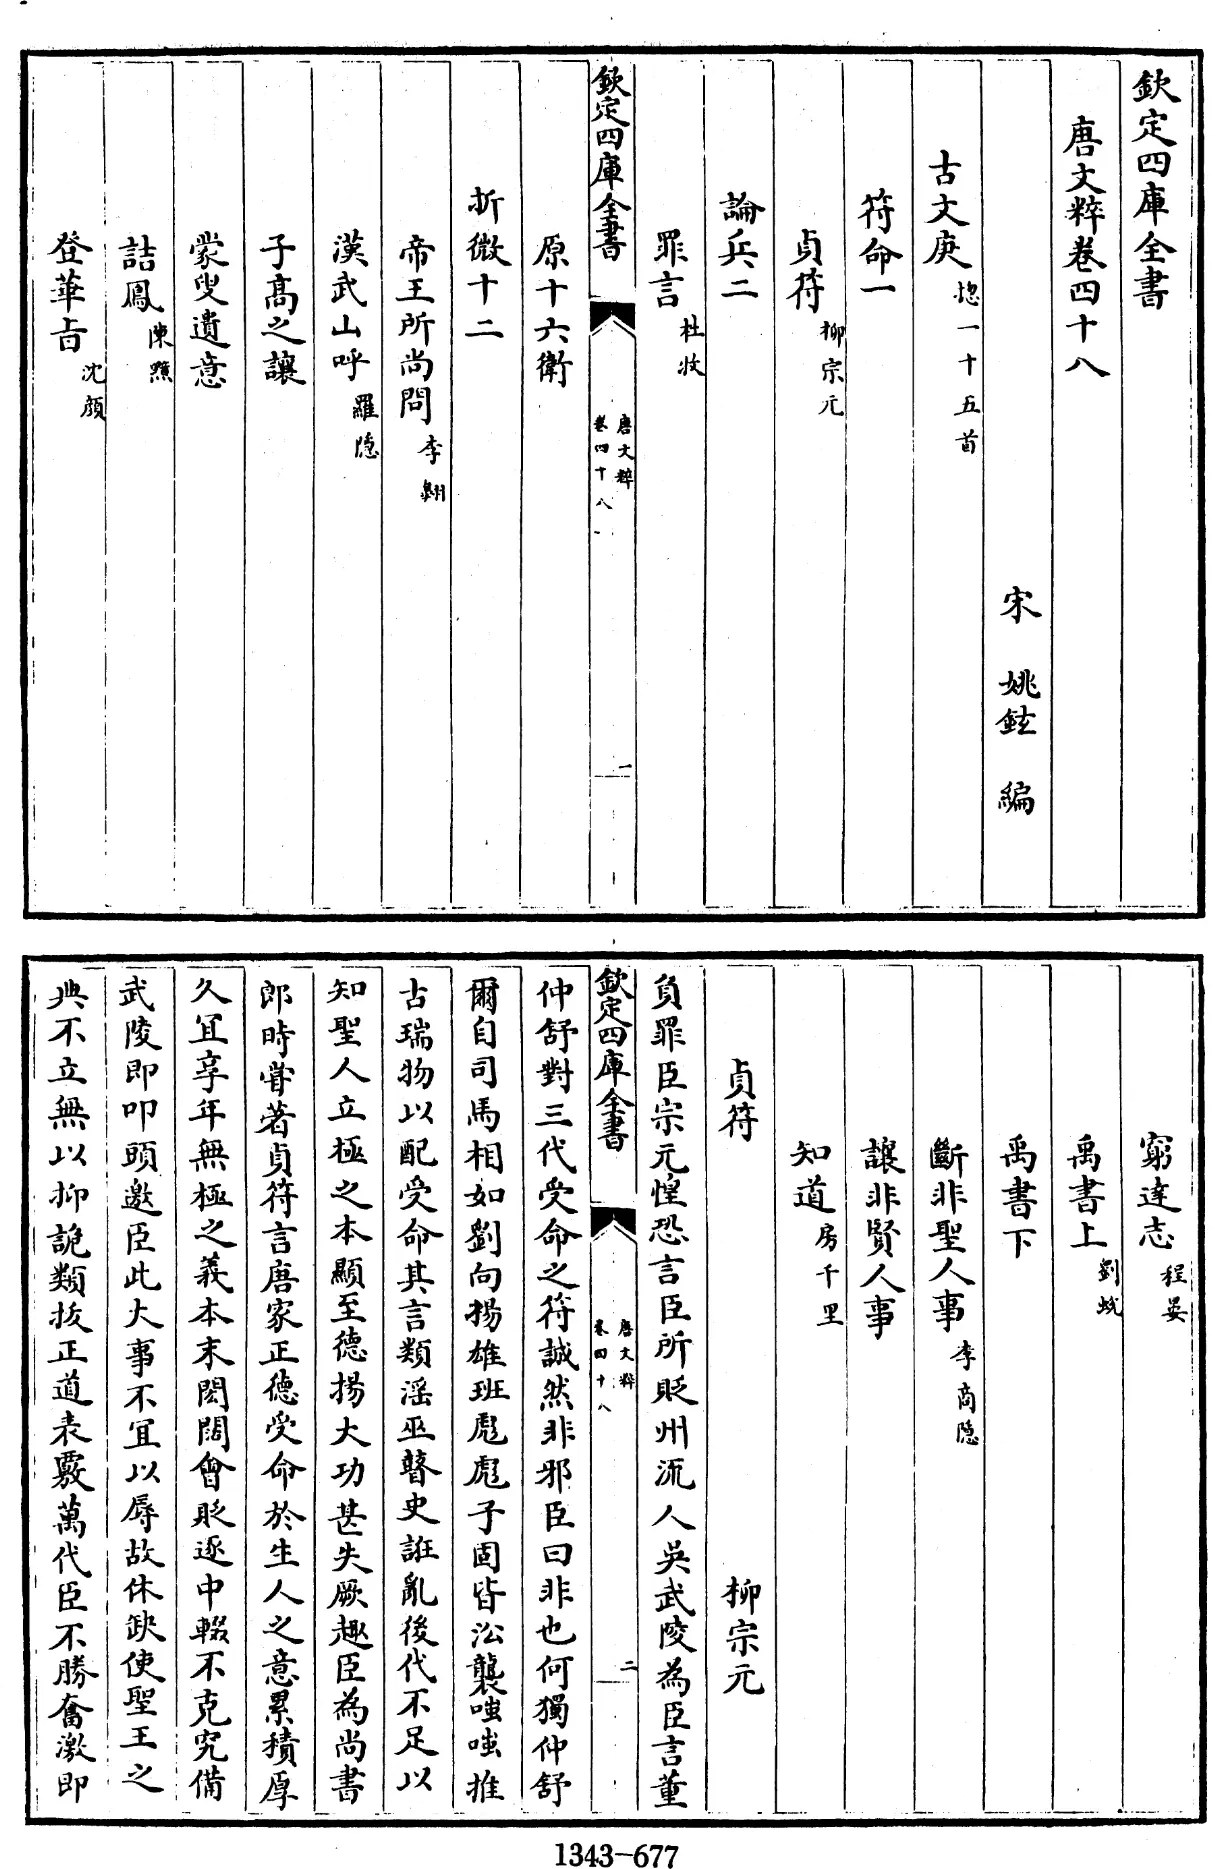 欽定四庫全書
唐文粹卷四十八
宋 姚鉉 編
古文庚 揔一十五首
符命一
貞符 柳宗元
論兵二
罪言 杜牧
欽定四庫全書
唐文粹
卷四十八
一
原十六衛
折微十二
帝王所尚問 李翺
漢武山呼 羅隱
子高之讓
蒙叟遺意
詰鳳 陳黯
登華旨 沈顔
窮達志 程晏
禹書上 劉蛻
禹書下
斷非聖人事 李商隱
讓非賢人事
知道 房千里
貞符 柳宗元
負罪臣宗元惶恐言臣所貶州流人吳武陵為臣言董
欽定四庫全書
唐文粹
卷四十八
二
仲舒對三代受命之符誠然非邪臣曰非也何獨仲舒
爾自司馬相如劉向揚雄班彪彪子固皆㳂襲嗤嗤推
古瑞物以配受命其言類滛巫瞽史誑亂後代不足以
知聖人立極之本顯至德揚大功甚失厥趣臣為尚書
郎時嘗著貞符言唐家正德受命於生人之意累積厚
久宜享年無極之義本末閎闊會貶逐中輟不克究備
武陵即叩頭邀臣此大事不宜以辱故休缺使聖王之
典不立無以抑詭類拔正道表覈萬代臣不勝奮激即
1343-677